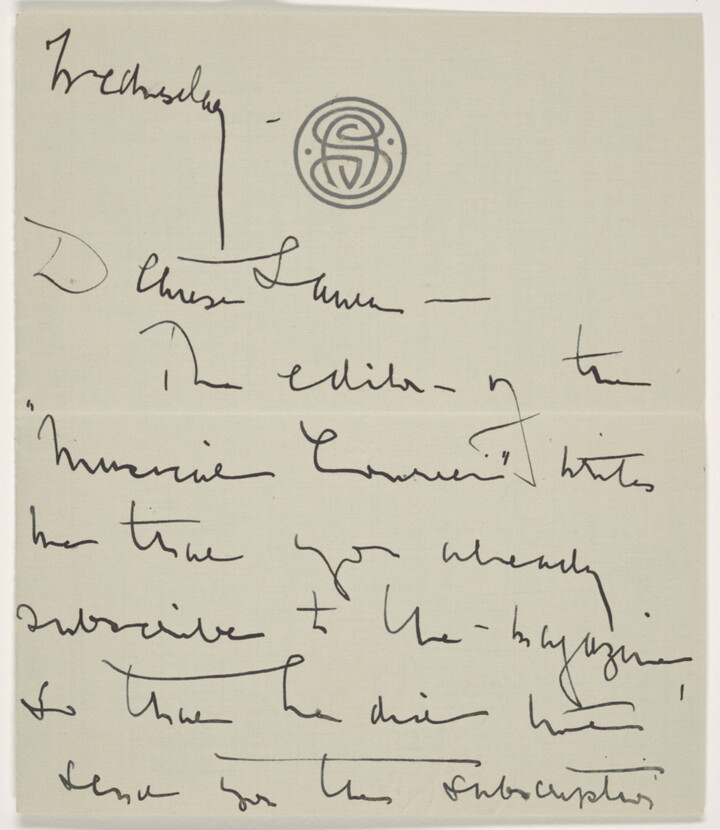 Wednesday -
Dearest Laura —
The editor of the
"Musical Courier" writes
me that you already
subscribe to the magazine,
so that he did not
send you the subscription